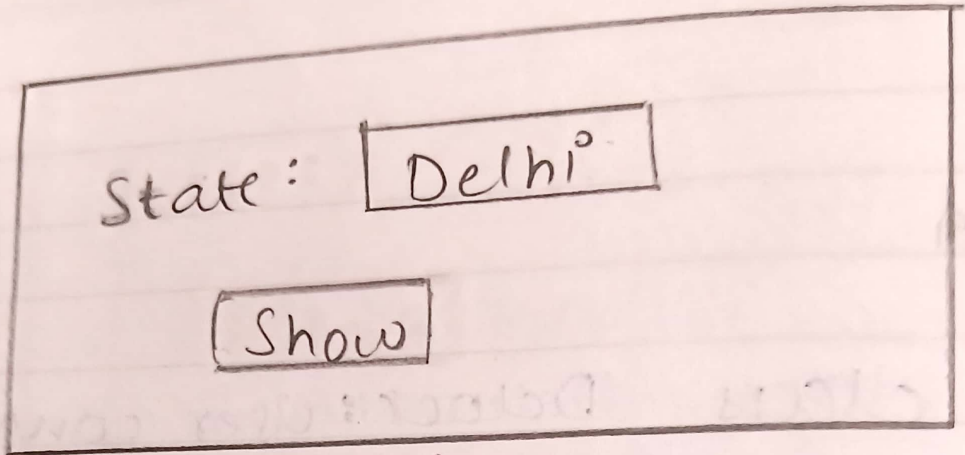 State: Delhi
Show